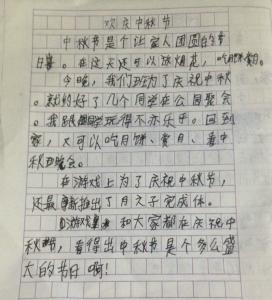 欢庆中秋节
中秋节是个让家人团圆的节
日。在这天还可以放烟花,吃月饼赏月。
今晚,我们班为了庆祝中秋
。就约好了几个同学在公园聚会
。我跟同学玩得不亦乐乎。回到
家,又可以吃月饼、赏月、看中
秋晚会。
在游戏上为了庆祝中秋节,
还最新推出了月光子完成体。
游戏里和大家都在庆祝中
秋节,看得出中秋节是个多么盛
大的节日啊!